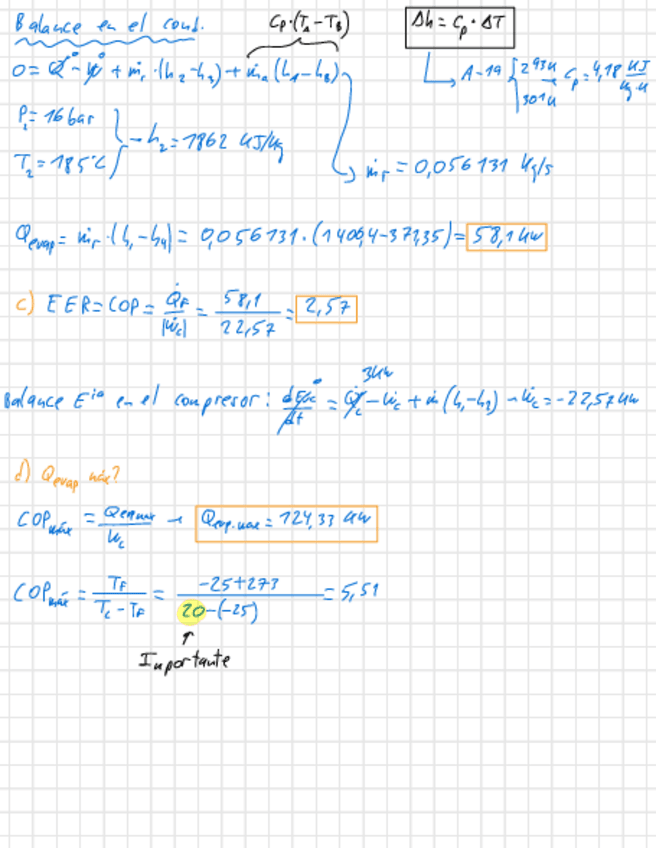 Balance en el cond.
Cp·(TA-TB)
Δh = Cp · ΔT
0 = Q̇ - Ẇ + ṁr·(h2-h3) + ṁa(hA-hB)
A-19 { 293K 301K → Cp = 4,18 KJ/Kg·K
P2 = 16 bar
T2 = 185°C } → h2 = 1862 KJ/Kg
ṁr = 0,056131 Kg/s
Qevap = ṁr·(h1-h4) = 0,056131·(1406,4-371,35) = 58,1 KW
c) EER = COP = Q̇F/|Ẇc| = 58,1/22,57 = 2,57
3KW
Balance Eia en el compresor: dEvc/dt = Q̇c - Ẇc + ṁ(h1-h2) → Ẇc = -22,57 KW
d) Qevap máx?
COPmáx = Qevp,max/Wc → Qevp.max = 124,33 KW
COPmáx = TF/(Tc - TF) = (-25+273)/(20-(-25)) = 5,51
↑
Importante